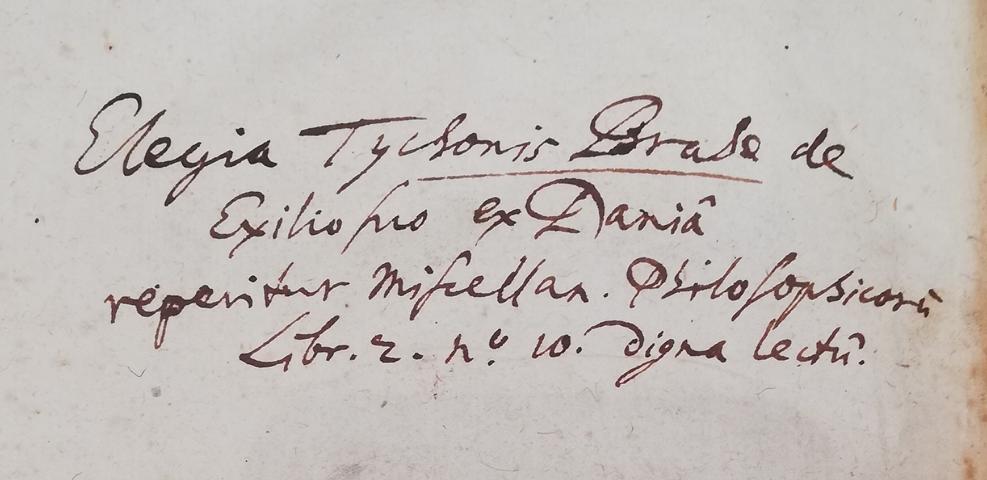 Elegia Tychonis Brahe de
Exilio suo ex Daniâ
reperitur Miscellan. Philosophicorū
Libr. 2. nº 10. digna lectū.